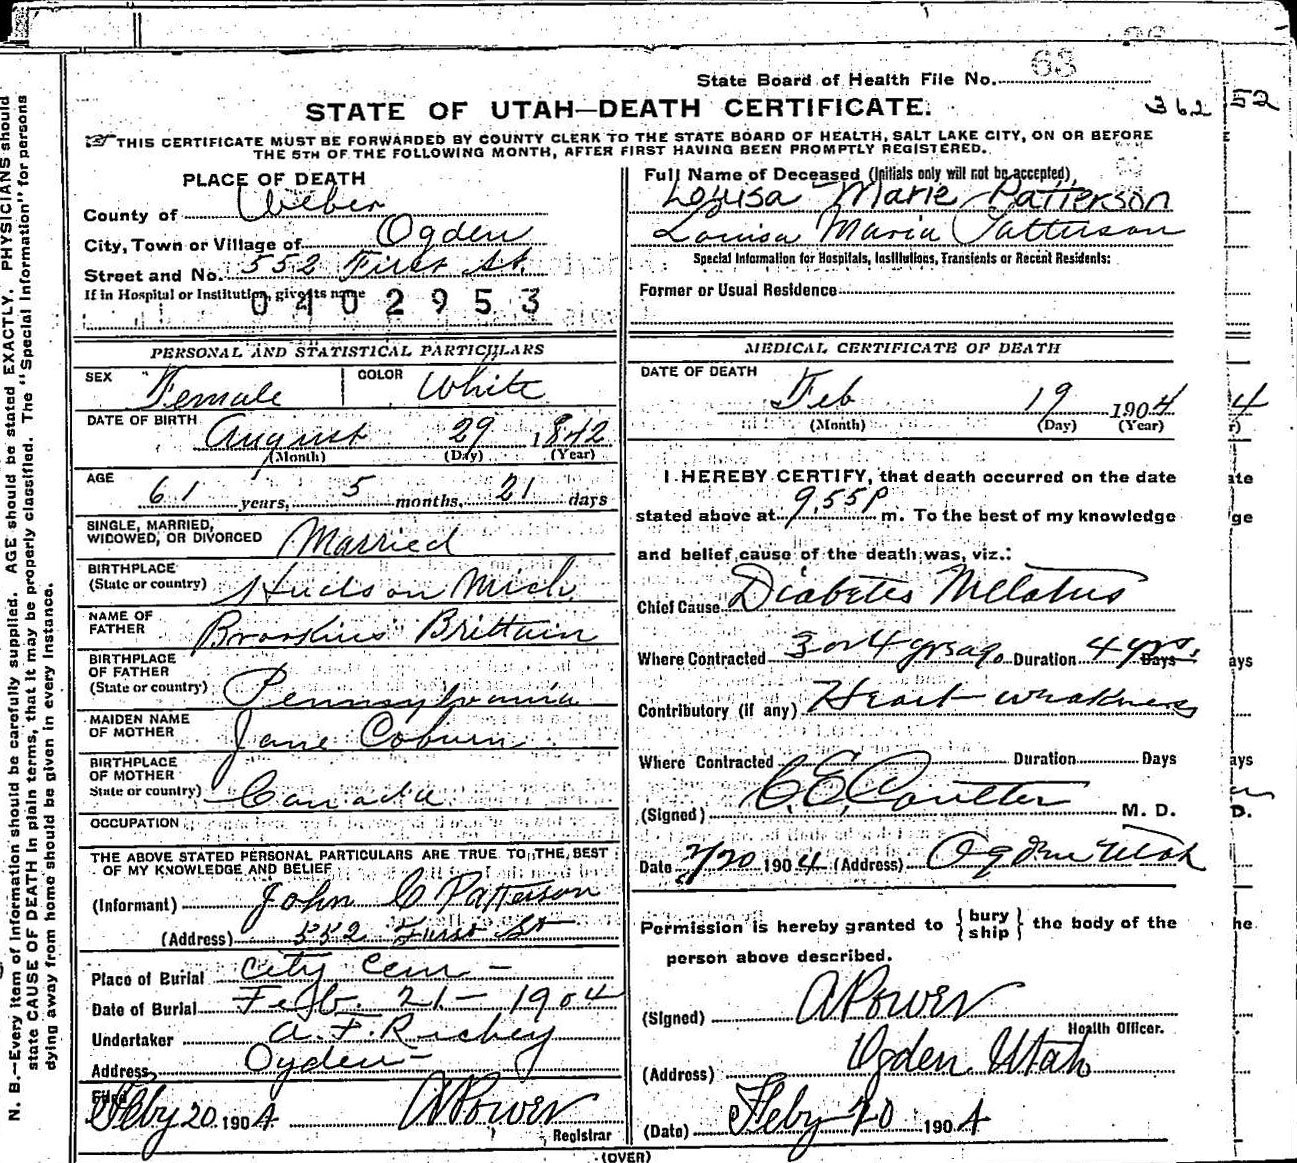 State Board of Health File No. 63
STATE OF UTAH—DEATH CERTIFICATE.
362 52
THIS CERTIFICATE MUST BE FORWARDED BY COUNTY CLERK TO THE STATE BOARD OF HEALTH, SALT LAKE CITY, ON OR BEFORE
THE 5TH OF THE FOLLOWING MONTH, AFTER FIRST HAVING BEEN PROMPTLY REGISTERED.
PLACE OF DEATH
County of Weber
City, Town or Village of Ogden
Street and No. 552 First St.
If in Hospital or Institution, give its name
0402953
Full Name of Deceased (Initials only will not be accepted)
Louisa Marie Patterson
Louisa Maria Patterson
Special Information for Hospitals, Institutions, Transients or Recent Residents:
Former or Usual Residence
PERSONAL AND STATISTICAL PARTICULARS
SEX Female COLOR White
DATE OF BIRTH August 29, 1842
(Month) (Day) (Year)
AGE 61 years, 5 months, 21 days
SINGLE, MARRIED,
WIDOWED, OR DIVORCED Married
BIRTHPLACE
(State or country) Hudson Mich
NAME OF
FATHER Brookins Brittain
BIRTHPLACE
OF FATHER
(State or country) Pennsylvania
MAIDEN NAME
OF MOTHER Jane Coburn
BIRTHPLACE
OF MOTHER
State or country) Canada
OCCUPATION
THE ABOVE STATED PERSONAL PARTICULARS ARE TRUE TO THE BEST
OF MY KNOWLEDGE AND BELIEF
(Informant) John C Patterson
(Address) 552 First St
Place of Burial City Cem —
Date of Burial Feb. 21 — 1904
Undertaker A. F. Richey
Address Ogden —
Filed Feby 20 1904 A Power
Registrar
MEDICAL CERTIFICATE OF DEATH
DATE OF DEATH
Feb 19 1904
(Month) (Day) (Year)
I HEREBY CERTIFY, that death occurred on the date
stated above at 9.55 P m. To the best of my knowledge
and belief cause of the death was, viz.:
Chief Cause Diabetes Mellatus
Where Contracted 3 or 4 yrs ago Duration 4 yrs. Days
Contributory (if any) Heart weakness
Where Contracted Duration Days
(Signed) C. E. Coulter M. D.
Date 2/20 1904 (Address) Ogden Utah
Permission is hereby granted to {bury
ship} the body of the
person above described.
(Signed) A Power
Health Officer.
(Address) Ogden Utah
(Date) Feby 20 1904
(OVER)
N. B.—Every item of information should be carefully supplied. AGE should be stated EXACTLY. PHYSICIANS should
state CAUSE OF DEATH in plain terms, that it may be properly classified. The "Special Information" for persons
dying away from home should be given in every instance.